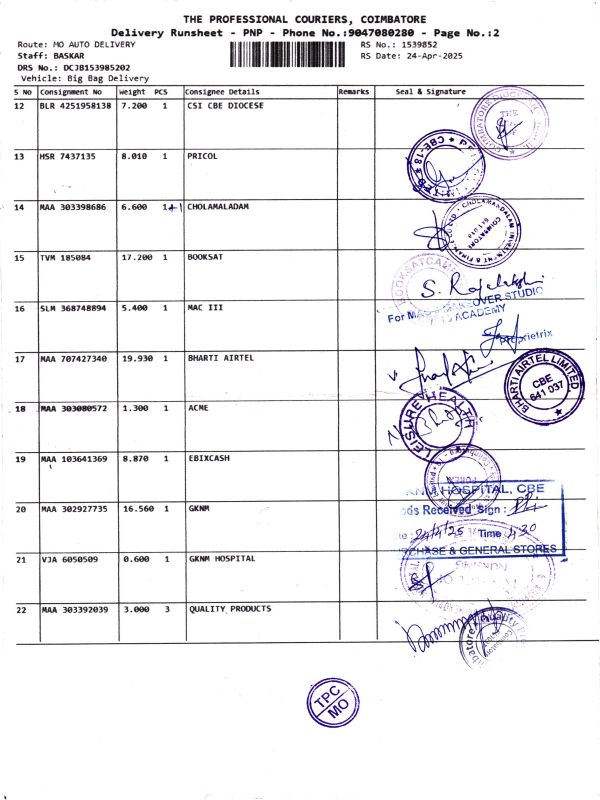 THE PROFESSIONAL COURIERS, COIMBATORE
Delivery Runsheet - PNP - Phone No.:9047080280 - Page No.:2
Route: MO AUTO DELIVERY RS No.: 1539852
Staff: BASKAR RS Date: 24-Apr-2025
DRS No.: DCJB153985202
Vehicle: Big Bag Delivery
S No Consignment No Weight PCS Consignee Details Remarks Seal & Signature
12 BLR 4251958138 7.200 1 CSI CBE DIOCESE
COIMBATORE DIOCESAN
THE
13 HSR 7437135 8.010 1 PRICOL
CBE-18
14 MAA 303398686 6.600 1+1 CHOLAMALADAM
CHOLAMANDALAM INVESTMENT & FINANCE CO
COIMBATORE
641 018
15 TVM 185084 17.200 1 BOOKSAT
BOOKSATCAMP
S. Rajalakshmi
16 SLM 368748894 5.400 1 MAC III
For MAKEOVER STUDIO
ACADEMY
Proprietrix
17 MAA 707427340 19.930 1 BHARTI AIRTEL
BHARTI AIRTEL LIMITED
CBE
641 037
18 MAA 303080572 1.300 1 ACME
LEISURE HEALTH
19 MAA 103641369 8.870 1 EBIXCASH
20 MAA 302927735 16.560 1 GKNM
HOSPITAL, CBE
Received Sign :
24/4/25 Time 4.30
CHASE & GENERAL STORES
21 VJA 6050509 0.600 1 GKNM HOSPITAL
22 MAA 303392039 3.000 3 QUALITY PRODUCTS
Quality
TPC
MO